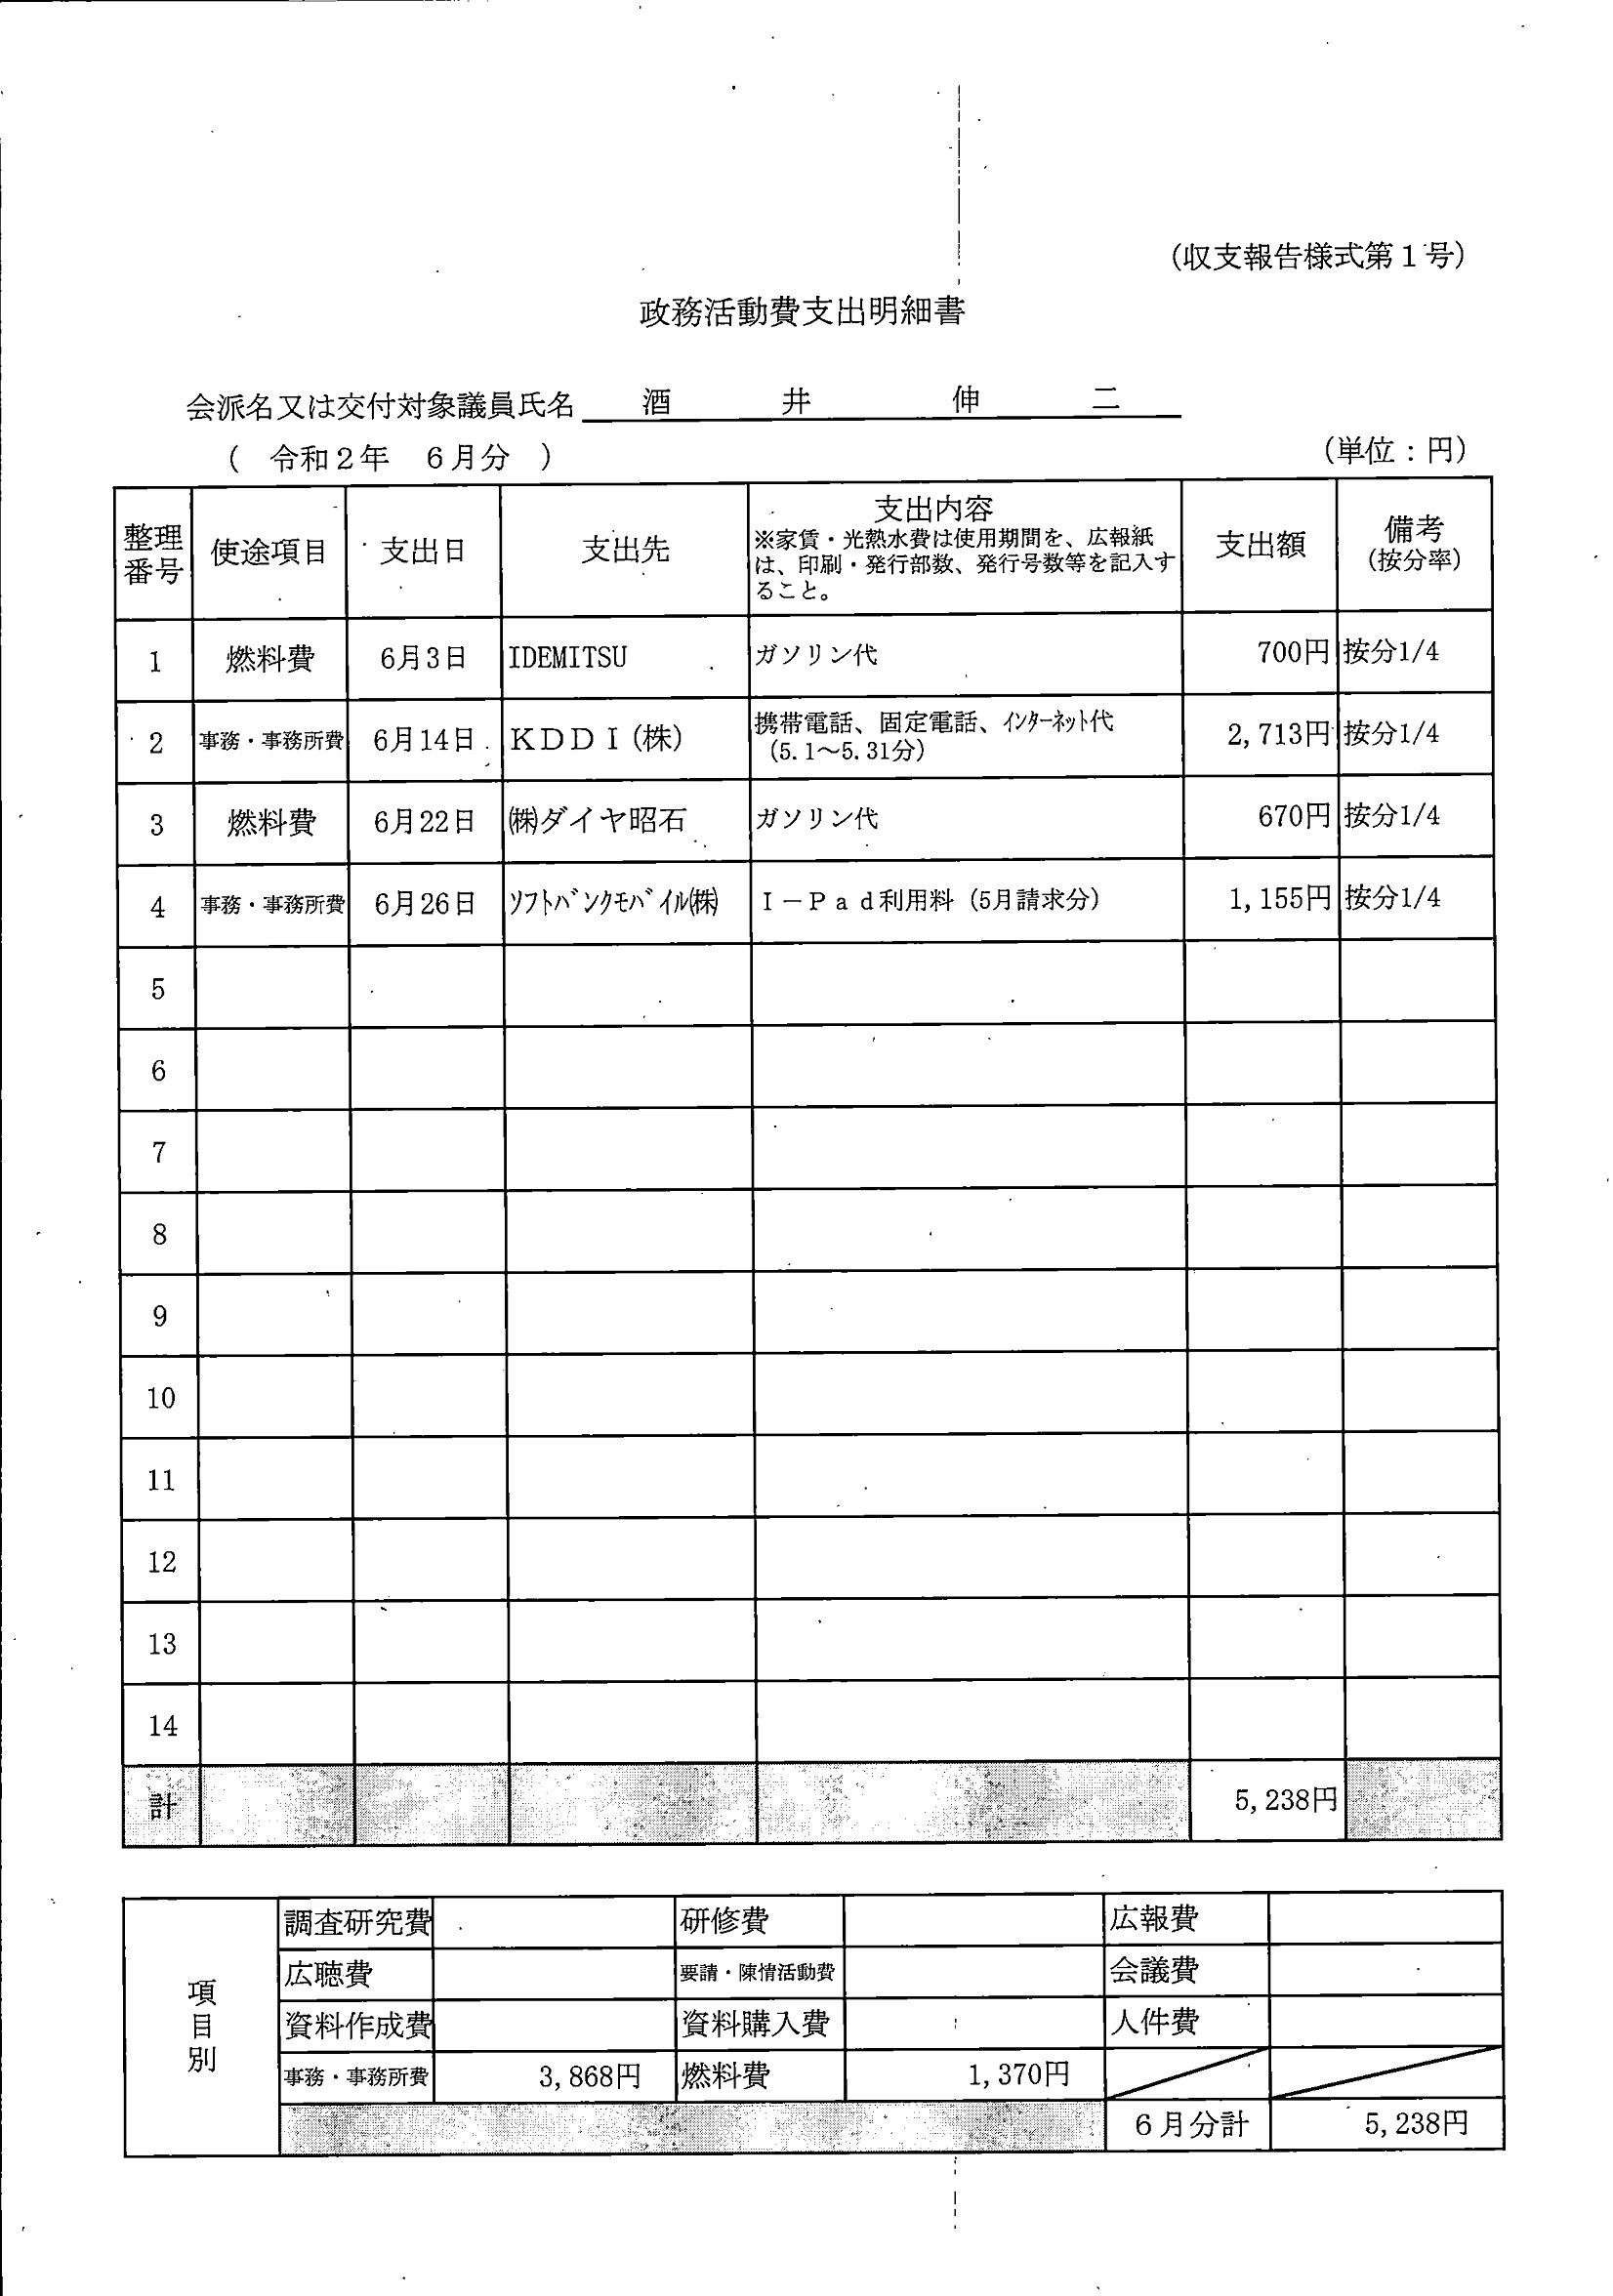 (収支報告様式第1号)
政務活動費支出明細書
会派名又は交付対象議員氏名 酒 井 伸 二
( 令和2年 6月分 ) (単位:円)
整理番号 使途項目 支出日 支出先 支出内容 ※家賃・光熱水費は使用期間を、広報紙は、印刷・発行部数、発行号数等を記入すること。 支出額 備考(按分率)
1 燃料費 6月3日 IDEMITSU ガソリン代 700円 按分1/4
2 事務・事務所費 6月14日 KDDI(株) 携帯電話、固定電話、インターネット代 (5.1~5.31分) 2,713円 按分1/4
3 燃料費 6月22日 ㈱ダイヤ昭石 ガソリン代 670円 按分1/4
4 事務・事務所費 6月26日 ソフトバンクモバイル㈱ I-Pad利用料(5月請求分) 1,155円 按分1/4
5
6
7
8
9
10
11
12
13
14
計 5,238円
項目別
調査研究費 研修費 広報費
広聴費 要請・陳情活動費 会議費
資料作成費 資料購入費 人件費
事務・事務所費 3,868円 燃料費 1,370円
6月分計 5,238円